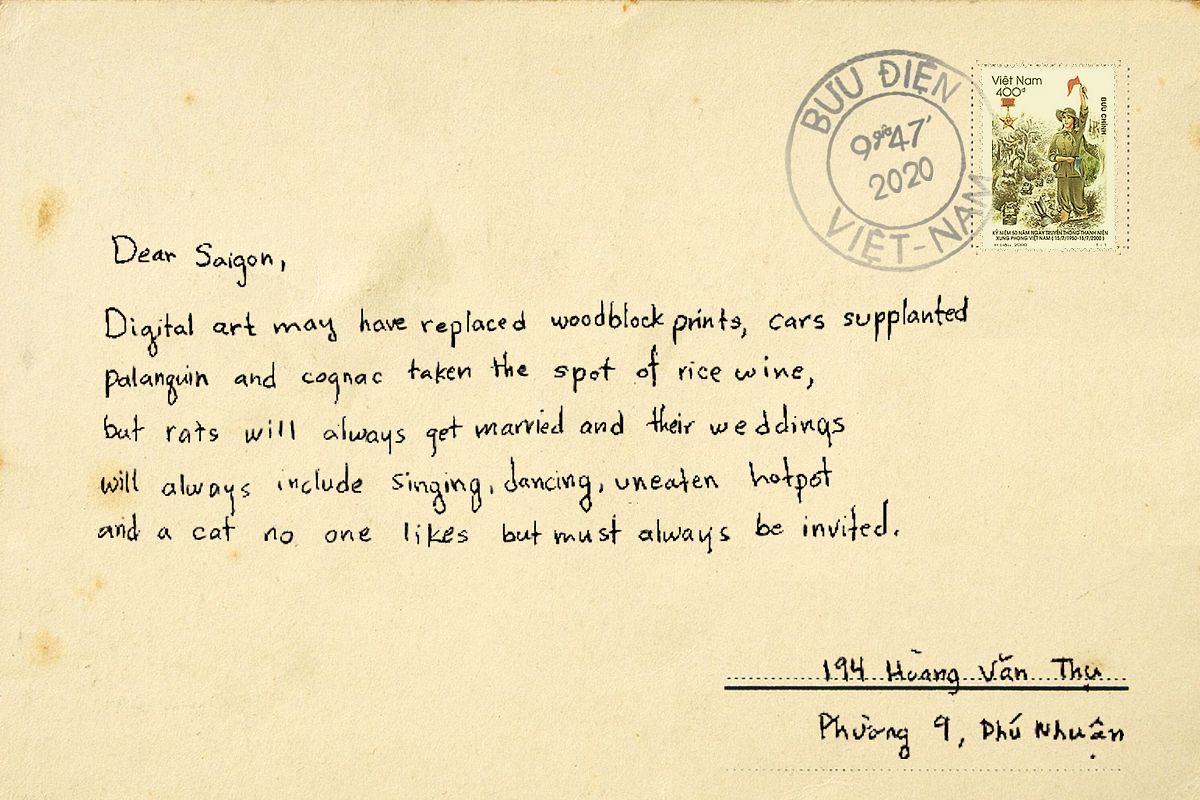 BƯU ĐIỆN
9giờ47'
2020
VIỆT-NAM
Việt Nam
400đ
BƯU CHÍNH
KỶ NIỆM 50 NĂM NGÀY TRUYỀN THỐNG THANH NIÊN
XUNG PHONG VIỆT NAM (15/7/1950-15/7/2000)
Dear Saigon,
Digital art may have replaced woodblock prints, cars supplanted
palanquin and cognac taken the spot of rice wine,
but rats will always get married and their weddings
will always include singing, dancing, uneaten hotpot
and a cat no one likes but must always be invited.
194 Hoàng Văn Thụ
Phường 9, Phú Nhuận